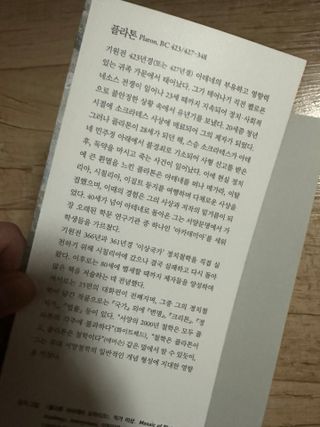 플라톤 Platon, BC 423/427~348
기원전 423년경(또는 427년경) 아테네의 부유하고 영향력
있는 귀족 가문에서 태어났다. 그가 태어나기 직전 펠로폰
네소스 전쟁이 일어나 23세 때까지 지속되어 정치·사회적
으로 불안정한 상황 속에서 유년기를 보냈다. 20세쯤 청년
시절에 소크라테스 사상에 매료되어 그의 제자가 되었다.
그러나 플라톤이 28세가 되던 해, 스승 소크라테스가 아테
네 민주정 아래에서 불경죄로 기소되어 사형 선고를 받은
후, 독약을 마시고 죽는 사건이 일어났다. 이에 현실 정치
에 큰 환멸을 느낀 플라톤은 아테네를 떠나 메가라, 이탈
리아, 시칠리아, 이집트 등지를 여행하며 다채로운 사상을
접했으며, 이때의 경험은 그의 사상과 저작의 밑거름이 되
었다. 40세가 넘어 아테네로 돌아온 그는 서양문명에서 가
장 오래된 학문 연구기관 중 하나인 '아카데미아'를 세워
학생들을 가르쳤다.
기원전 366년과 361년경 '이상국가' 정치철학을 직접 실
전하기 위해 시칠리아에 갔으나 결국 실패하고 다시 돌아
이후로는 80세에 별세할 때까지 제자들을 양성하며
많은 책을 저술하는 데 전념했다.
저서로는 25편의 대화편이 전해지며, 그중 그의 정치철
학이 담긴 작품으로는 『국가』 외에 『변명』, 『크리톤』, 『정
치가』, 『법률』 등이 있다. "서양의 2000년 철학은 모두 플
라톤의 각주에 불과하다"(화이트헤드), "철학은 플라톤이
고, 플라톤은 철학이다"(에머슨) 같은 말에서 알 수 있듯이,
그는 후대 서양철학의 일반적인 개념 형성에 지대한 영향
을 끼쳤다.